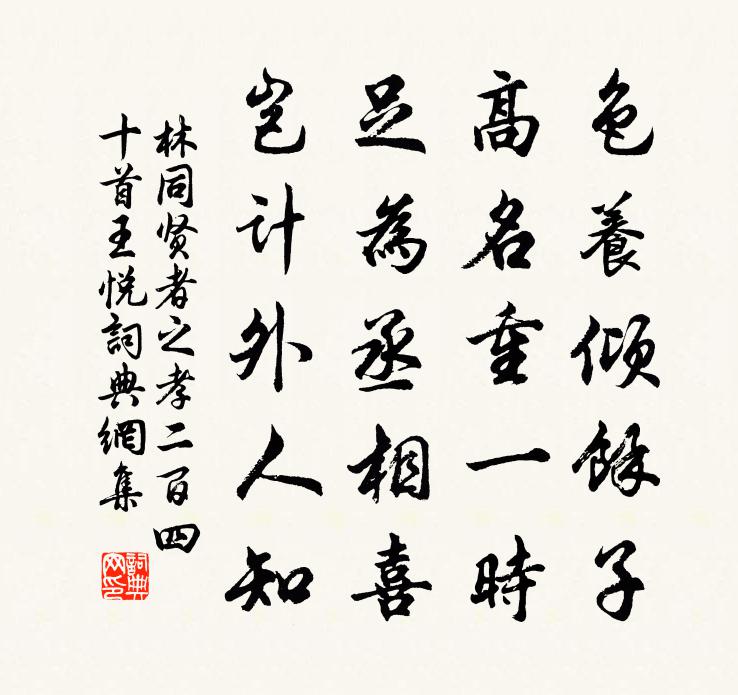 色養傾餘子
高名重一時
足為丞相喜
豈计外人知
林同贤者之孝二百四
十首王悦詞典網集
詞典
网印